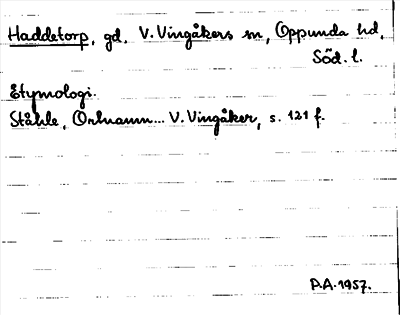 Haddetorp, gd, V. Vingåkers sn, Oppunda hd,
Söd. l.
Etymologi.
Ståhle, Ortnamn... V. Vingåker, s. 121 f.
P.A. 1957.